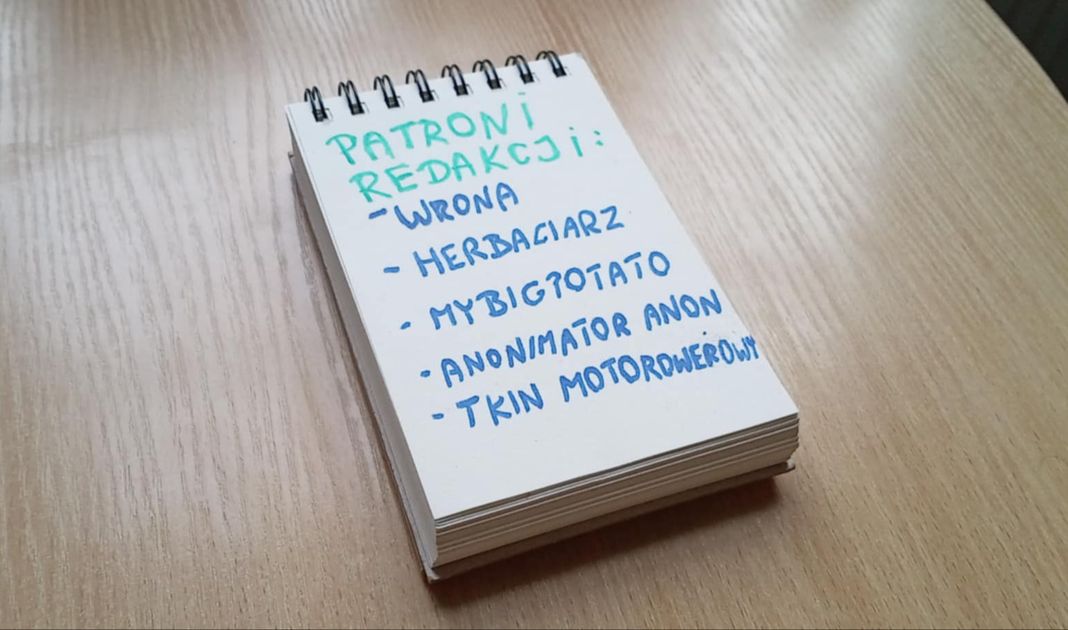 PATRONi
REDAKCJi:
- WRONA
- HERBACIARZ
- MYBIGPOTATO
- ANONIMATOR ANON
- TKIN MOTOROWEROWY